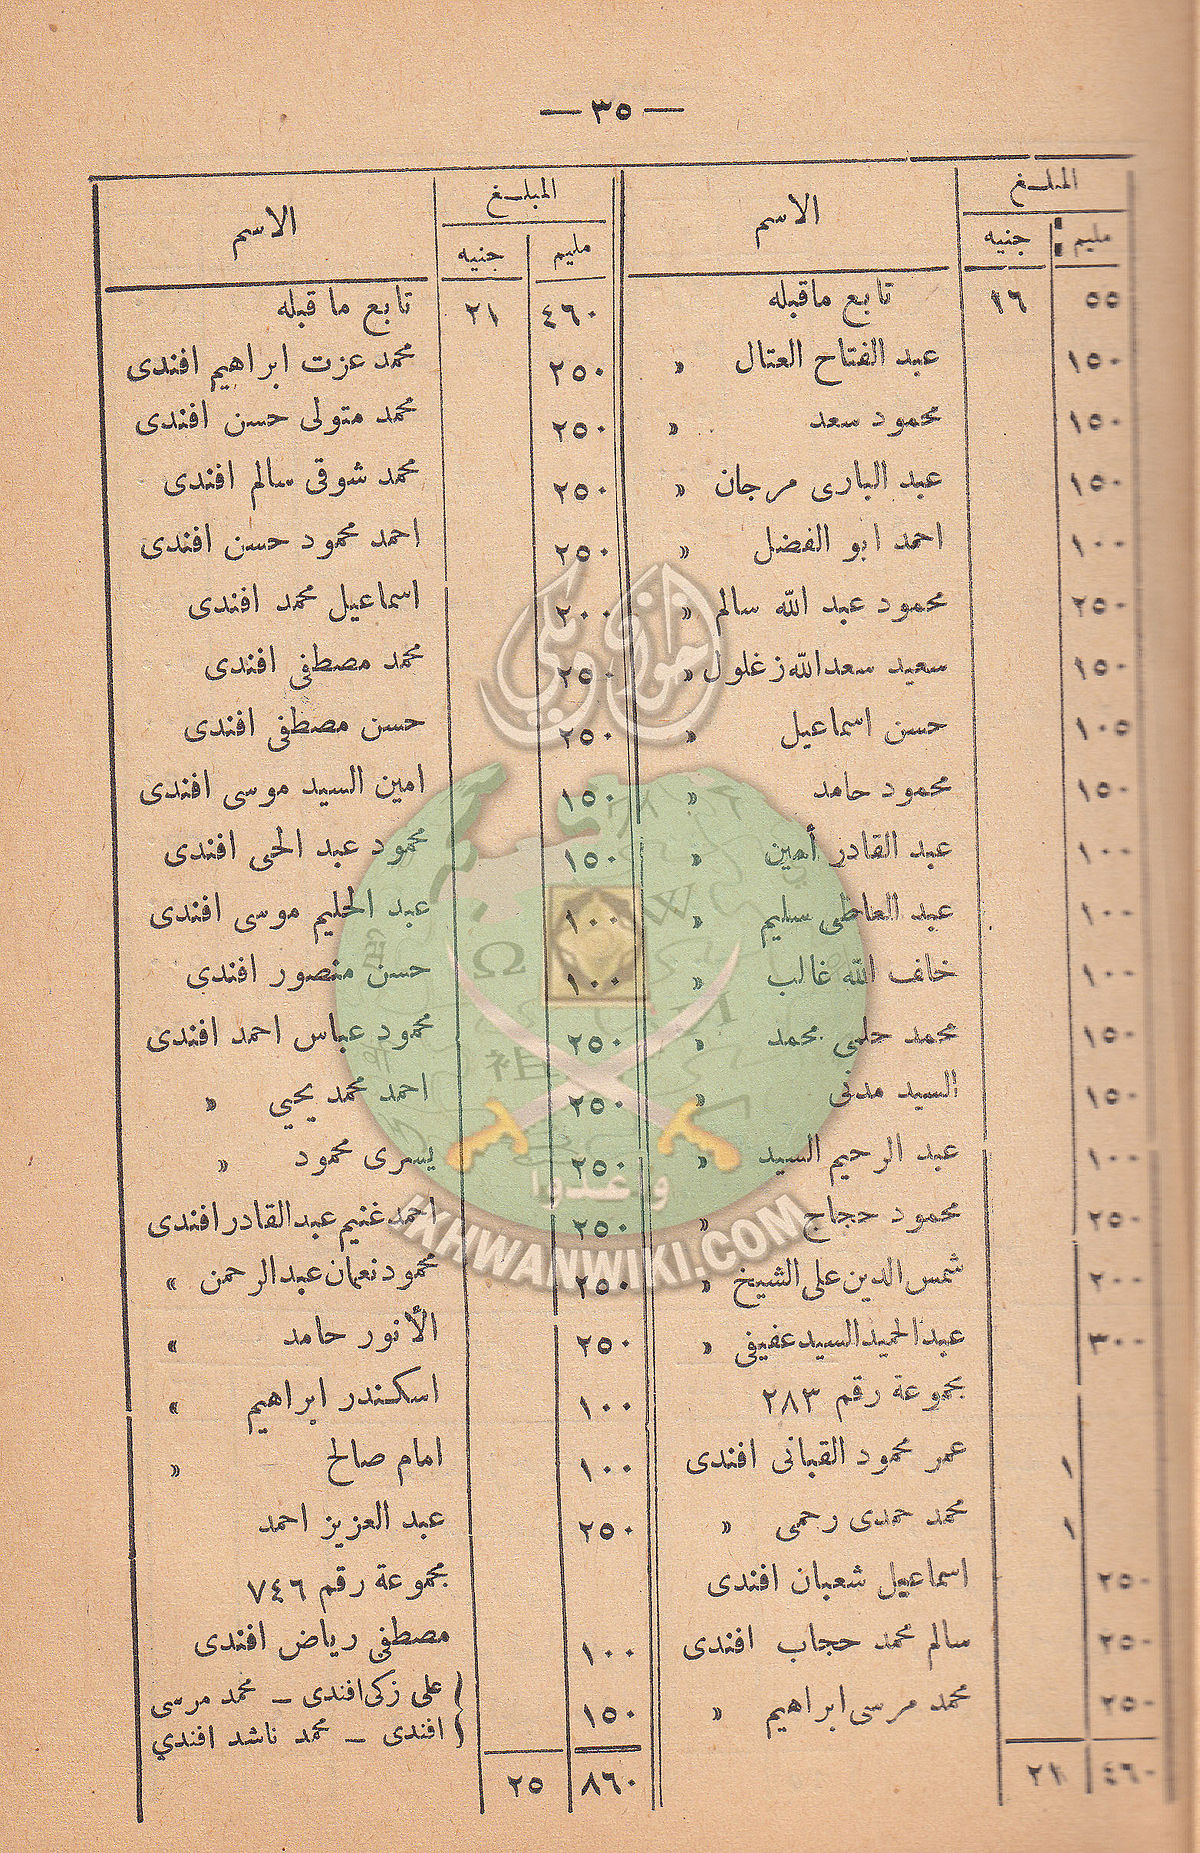 — ٣٥ —
المبلغ الاسم
مليم جنيه
٥٥ ١٦ تابع ماقبله
١٥٠ عبد الفتاح العتال »
١٥٠ محمود سعد »
١٥٠ عبد البارى مرجان »
١٠٠ احمد ابو الفضل »
٢٥٠ محمود عبد الله سالم »
١٥٠ سعيد سعد الله زغلول »
١٠٥ حسن اسماعيل »
١٥٠ محمود حامد »
١٠٠ عبد القادر أمين »
١٠٠ عبد العاطى سليم »
١٠٠ خلف الله غالب »
١٥٠ محمد حلمى محمد »
١٥٠ السيد مدنى »
١٠٠ عبد الرحيم السيد »
٢٥٠ محمود حجاج »
٢٠٠ شمس الدين على الشيخ »
٣٠٠ عبد الحميد السيد عفيفى »
مجموعة رقم ٢٨٣
١ عمر محمود القبانى افندى
١ محمد حمدى رحمى »
٢٥٠ اسماعيل شعبان افندى
٢٥٠ سالم محمد حجاب افندى
٢٥٠ محمد مرسى ابراهيم »
٤٦٠ ٢١
المبلغ الاسم
مليم جنيه
٤٦٠ ٢١ تابع ما قبله
٢٥٠ محمد عزت ابراهيم افندى
٢٥٠ محمد متولى حسن افندى
٢٥٠ محمد شوقى سالم افندى
٢٥٠ احمد محمود حسن افندى
٢٠٠ اسماعيل محمد افندى
٢٥٠ محمد مصطفى افندى
٢٥٠ حسن مصطفى افندى
١٥٠ امين السيد موسى افندى
١٥٠ محمود عبد الحى افندى
١٠٠ عبد الحليم موسى افندى
١٠٠ حسن منصور افندى
٢٥٠ محمود عباس احمد افندى
٢٥٠ احمد محمد يحيي »
٢٥٠ يسرى محمود »
٢٥٠ احمد غنيم عبد القادر افندى
٢٥٠ محمود نعمان عبد الرحمن »
٢٥٠ الأنور حامد »
١٠٠ اسكندر ابراهيم »
١٠٠ امام صالح »
٢٥٠ عبد العزيز احمد
مجموعة رقم ٧٤٦
١٠٠ مصطفى رياض افندى
١٥٠ على زكى افندى – محمد مرسى
افندى – محمد ناشد افندي
٨٦٠ ٢٥
إخوان ويكي
وأعدوا
IKHWANWIKI.COM